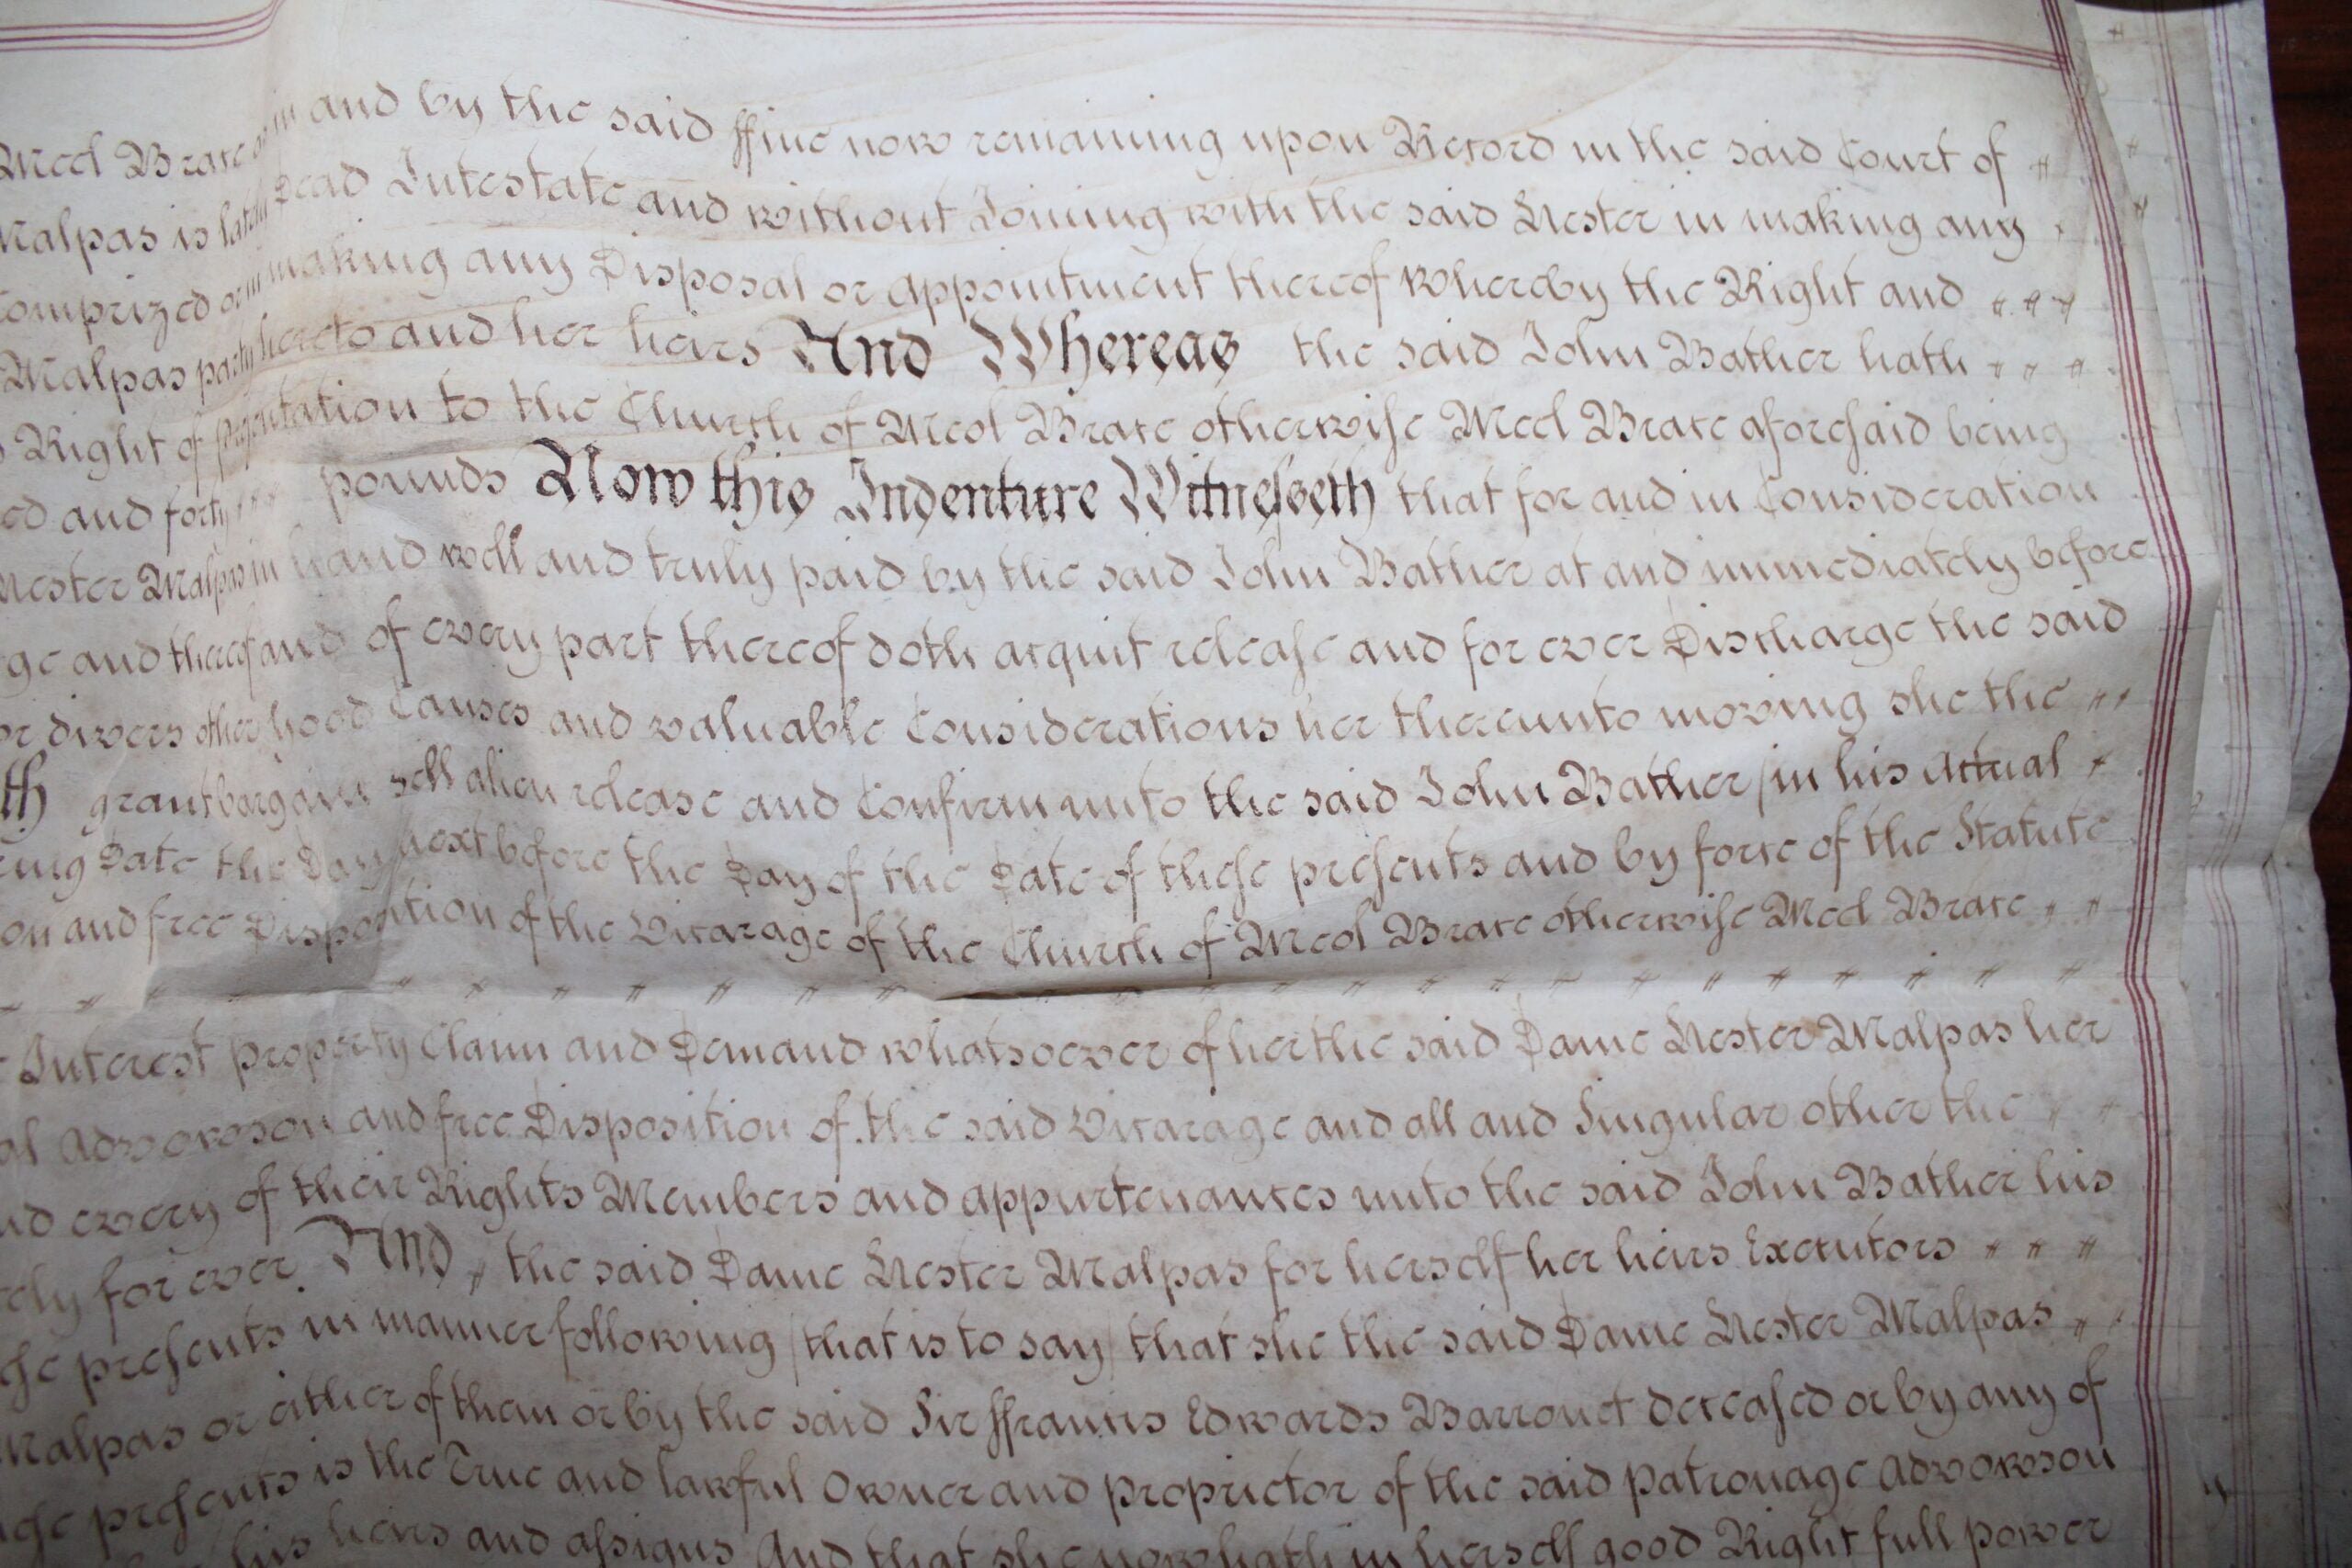 Meol Brace and by the said ffine now remaining upon Record in the said Court of
Malpas is lately Dead Intestate and without Joining with the said Hester in making any
Comprized or in making any Disposal or appointment thereof Whereby the Right and
Malpas party hereto and her heirs And Whereas the said John Bather hath
Right of presentation to the Church of Meol Brace otherwise Meel Brace aforesaid being
ed and forty pounds Now this Indenture Witnesseth that for and in Consideration
Hester Malpas in hand well and truly paid by the said John Bather at and immediately before
ge and thereof and of every part thereof doth acquit release and for ever Discharge the said
or divers other good Causes and valuable Considerations her thereunto moving she the
th grant bargain sell alien release and Confirm unto the said John Bather (in his Actual
ring Date the Day next before the Day of the Date of these presents and by force of the Statute
on and free Disposition of the Vicarage of the Church of Meol Brace otherwise Meel Brace
Interest property Claim and Demand whatsoever of her the said Dame Hester Malpas her
al Advowson and free Disposition of the said Vicarage and all and Singular other the
nd every of their Rights Members and appurtenances unto the said John Bather his
ely for ever And the said Dame Hester Malpas for herself her heirs Executors
ese presents in manner following (that is to say) that she the said Dame Hester Malpas
Malpas or either of them or by the said Sir ffrancis Edwards Barronet deceased or by any of
ese presents is the True and lawful Owner and proprietor of the said patronage Advowson
his heirs and assigns And that she now hath in herself good Right full power